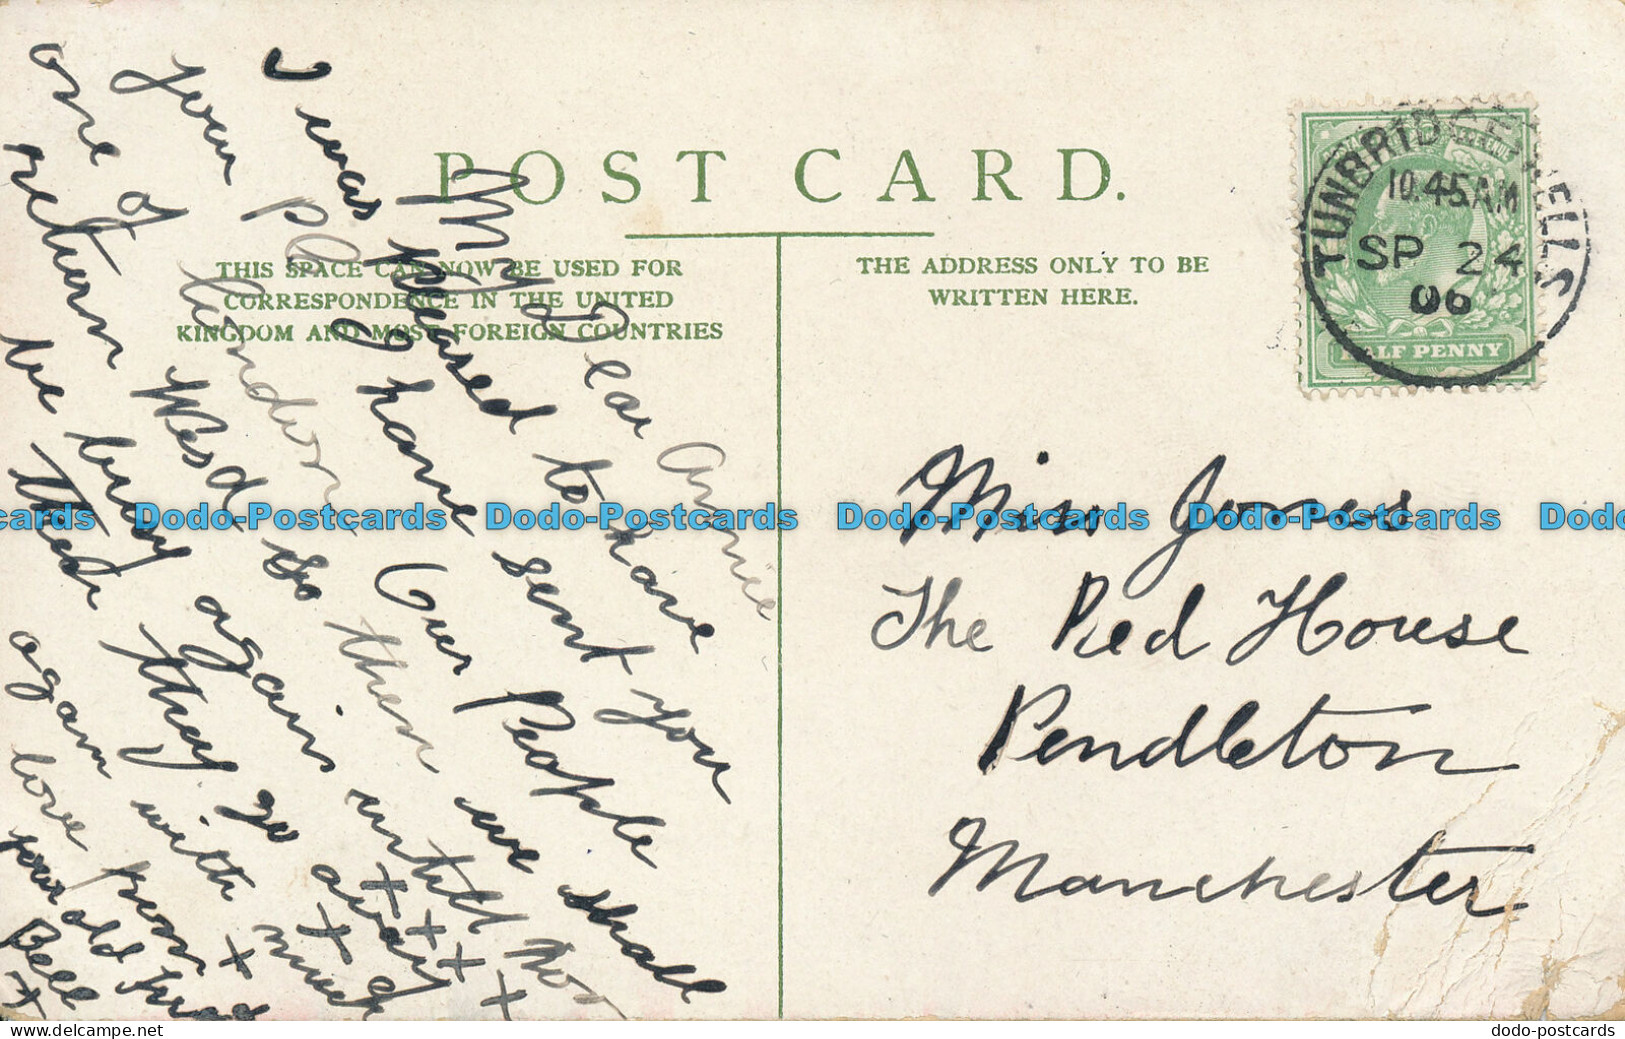 POST CARD.
THIS SPACE CAN NOW BE USED FOR
CORRESPONDENCE IN THE UNITED
KINGDOM AND MOST FOREIGN COUNTRIES
THE ADDRESS ONLY TO BE
WRITTEN HERE.
TUNBRIDGE WELLS
10.45 AM
SP 24
06
HALF PENNY
My Dear Annie
I was pleased to have
your P I have sent you
one of London Our People
return Wesd so then we shall
be busy again untill Nov
then they go away
again with much
love from
your old friend
Bell
x x x x x x x
Miss Jones
The Red House
Pendleton
Manchester
Dodo-Postcards Dodo-Postcards Dodo-Postcards
dodo-postcards.ecrater.com
dodo-postcards